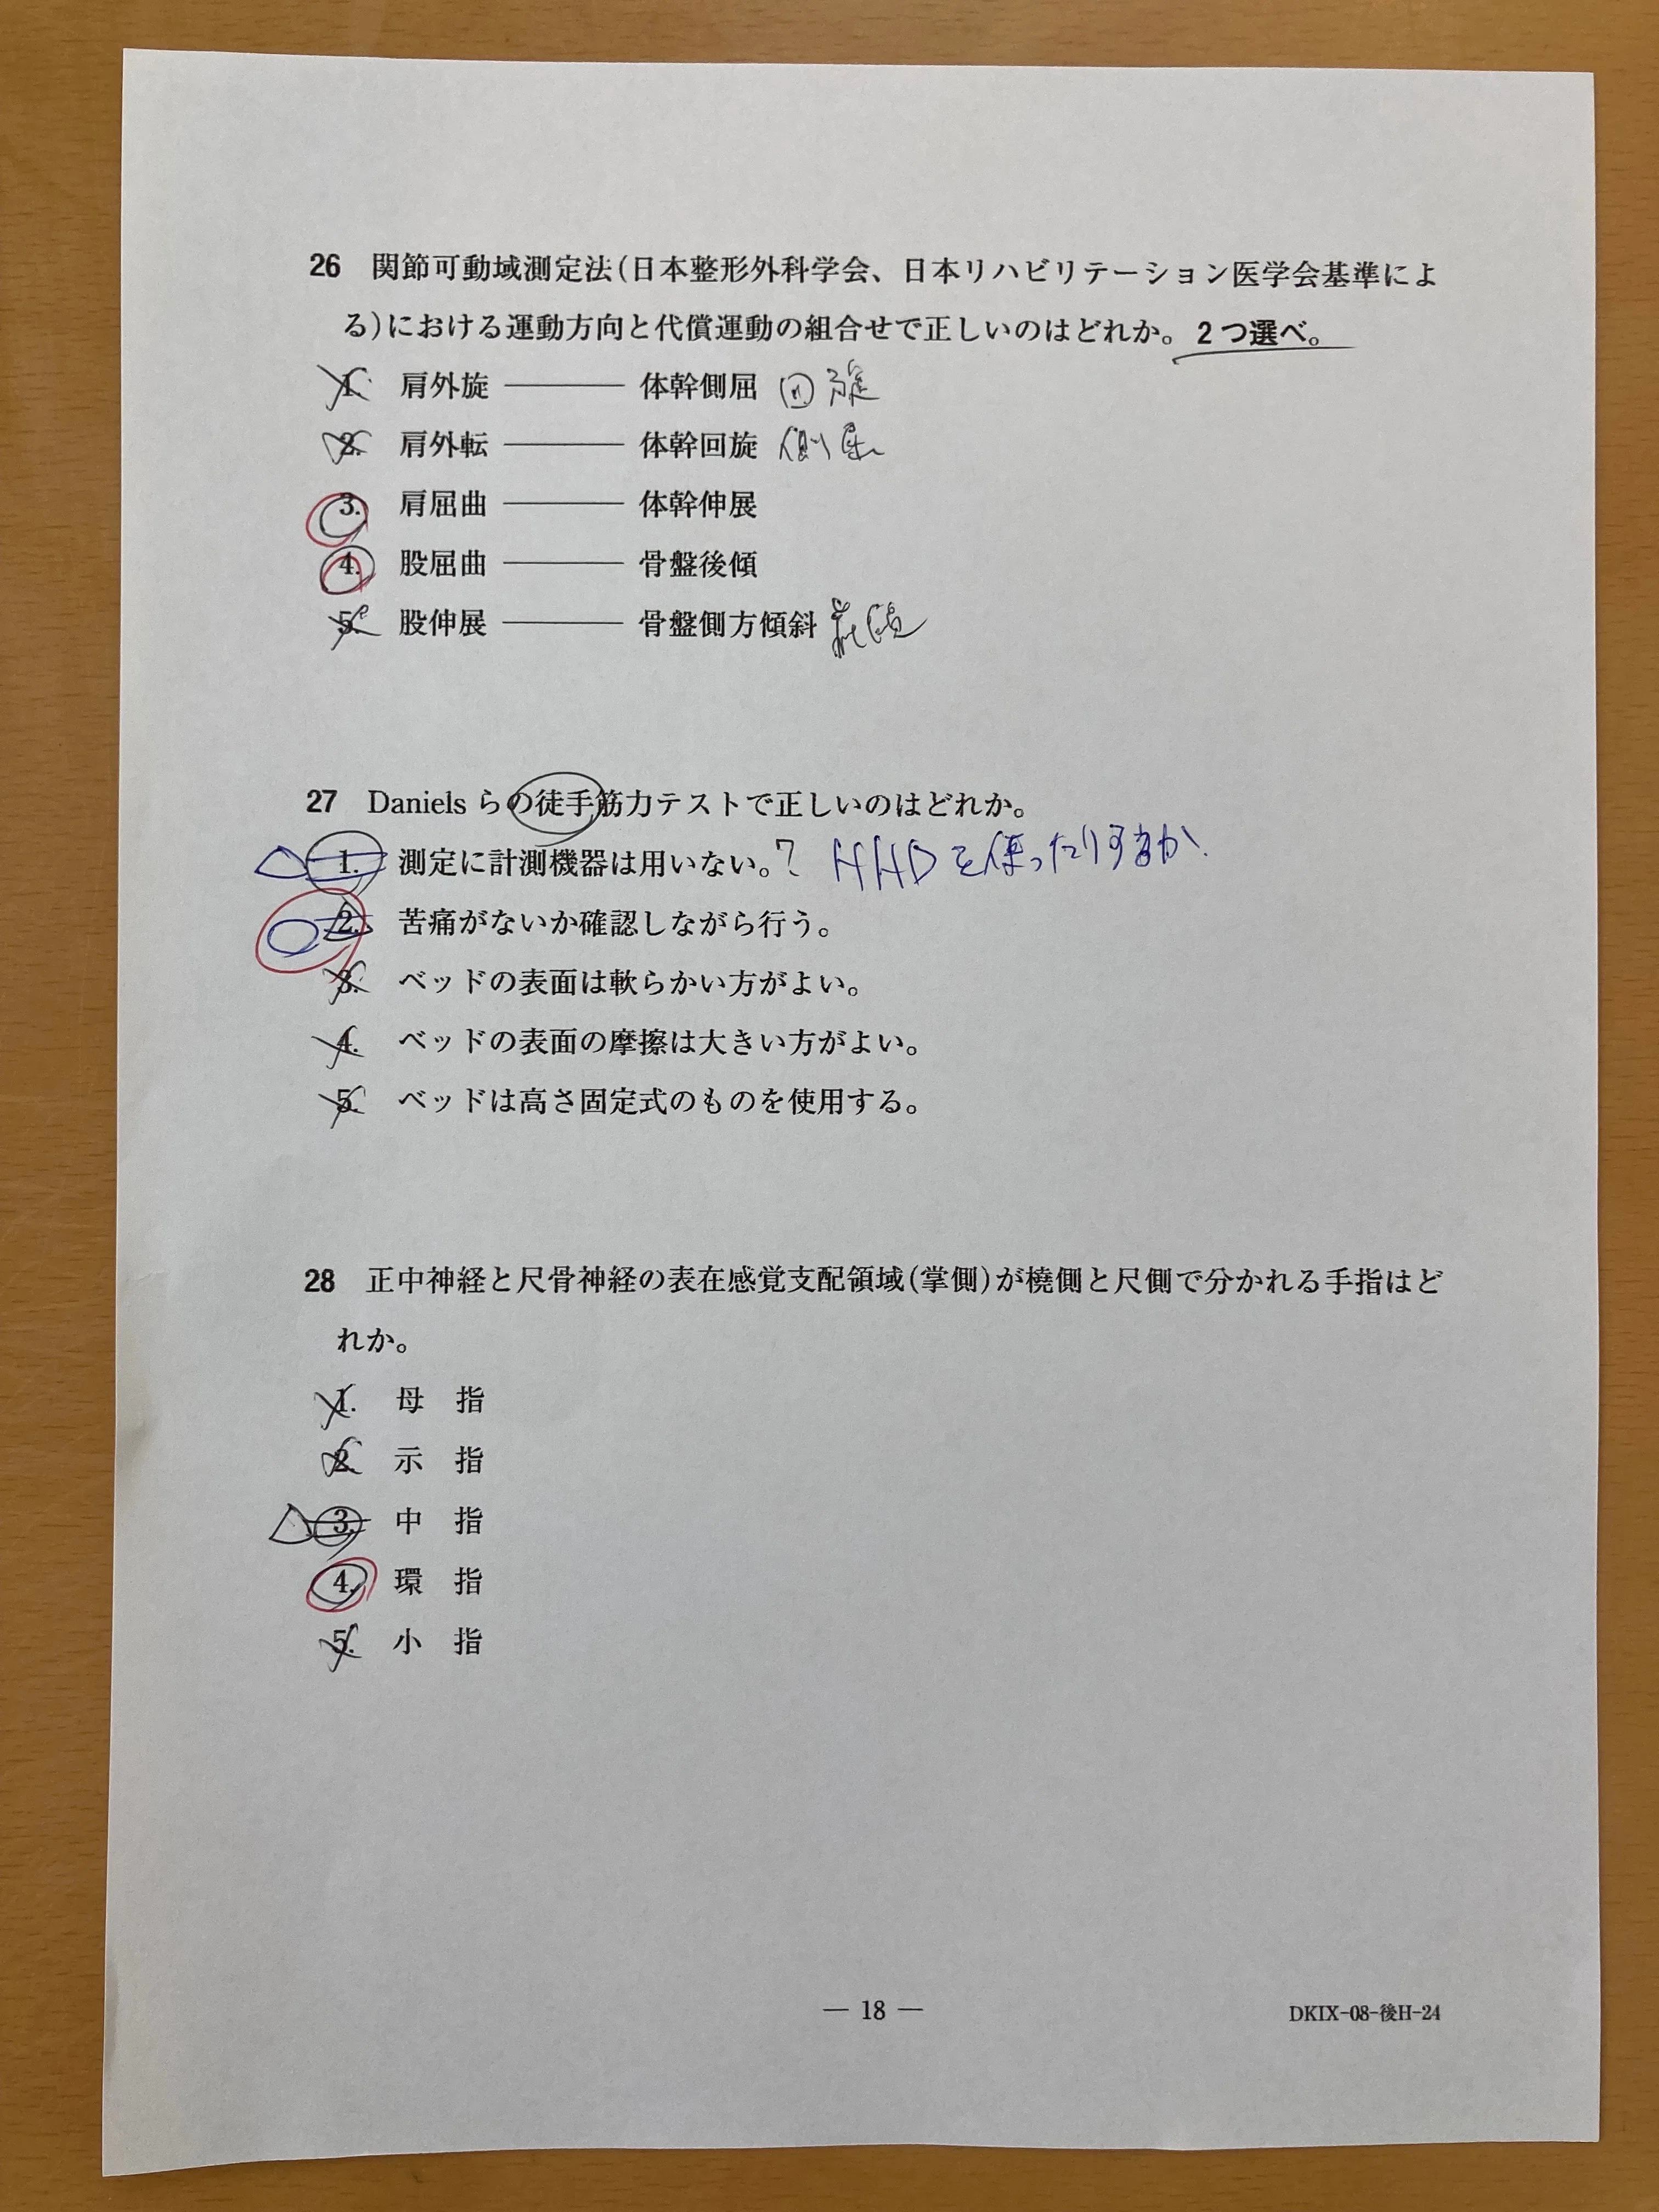 26 関節可動域測定法(日本整形外科学会、日本リハビリテーション医学会基準によ
る)における運動方向と代償運動の組合せで正しいのはどれか。2つ選べ。
1. 肩外旋 ——— 体幹側屈 回旋
2. 肩外転 ——— 体幹回旋 側屈
3. 肩屈曲 ——— 体幹伸展
4. 股屈曲 ——— 骨盤後傾
5. 股伸展 ——— 骨盤側方傾斜 前傾
27 Danielsらの徒手筋力テストで正しいのはどれか。
1. 測定に計測機器は用いない。? HHDを使ったりするか、
2. 苦痛がないか確認しながら行う。
3. ベッドの表面は軟らかい方がよい。
4. ベッドの表面の摩擦は大きい方がよい。
5. ベッドは高さ固定式のものを使用する。
28 正中神経と尺骨神経の表在感覚支配領域(掌側)が橈側と尺側で分かれる手指はど
れか。
1. 母 指
2. 示 指
3. 中 指
4. 環 指
5. 小 指
— 18 —
DKIX-08-後H-24